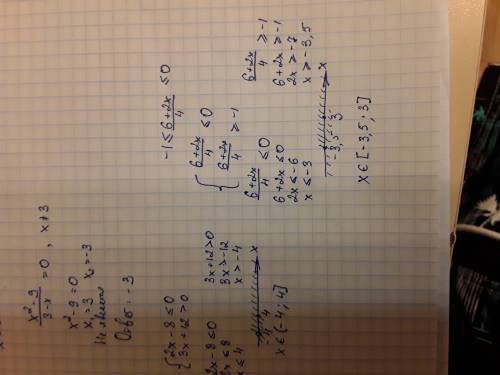 x² - 9
3 - x
= 0 , x ≠ 3
x² - 9 = 0
x₁ = 3 x₂ = -3
Ответ: -3
{ 2x - 8 ≤ 0
3x + 12 > 0
2x - 8 ≤ 0
2x ≤ 8
x ≤ 4
3x + 12 > 0
3x > -12
x > -4
-4 4 x
x ∈ (-4 ; 4]
-1 ≤ 6+2x/4 ≤ 0
{ 6+2x/4 ≤ 0
6+2x/4 ≥ -1
6+2x/4 ≤ 0
6+2x ≤ 0
2x ≤ -6
x ≤ -3
6+2x/4 ≥ -1
6+2x ≥ -1
2x ≥ -7
x ≥ -3,5
-3,5 3 x
x ∈ [-3,5 ; 3]